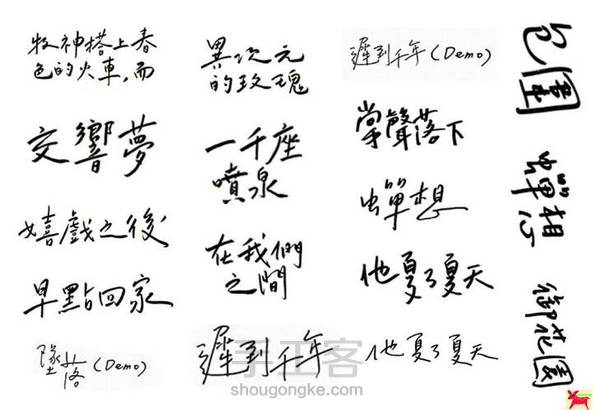 牧神搭上春
色的火車,而
交響夢
嬉戲之後
早點回家
墜落(Demo)
異次元
的玫瑰
一千座
噴泉
在我們
之間
遲到千年
遲到千年(Demo)
掌聲落下
蟬想
他夏了夏天
他夏了夏天
包圍
蟬想
御花園
手工客
shougongke.com